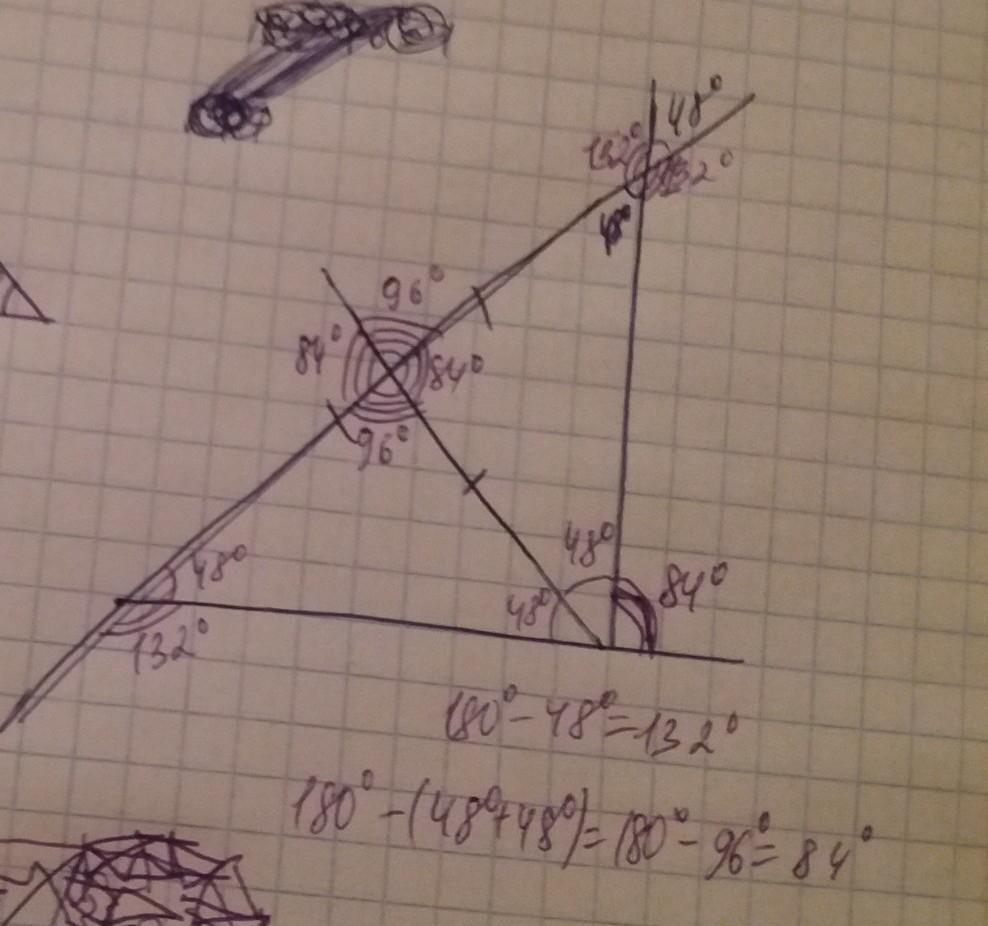 48°
132°
132°
48°
96°
84°
84°
96°
48°
48°
84°
132°
48°
180° - 48° = 132°
180° - (48° + 48°) = 180° - 96° = 84°